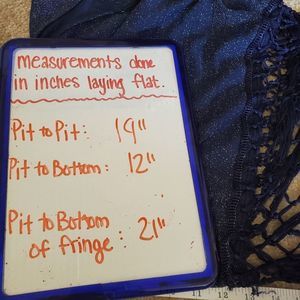 measurements done
in inches laying flat.
Pit to Pit: 19"
Pit to Bottom: 12"
Pit to Bottom
of fringe: 21"